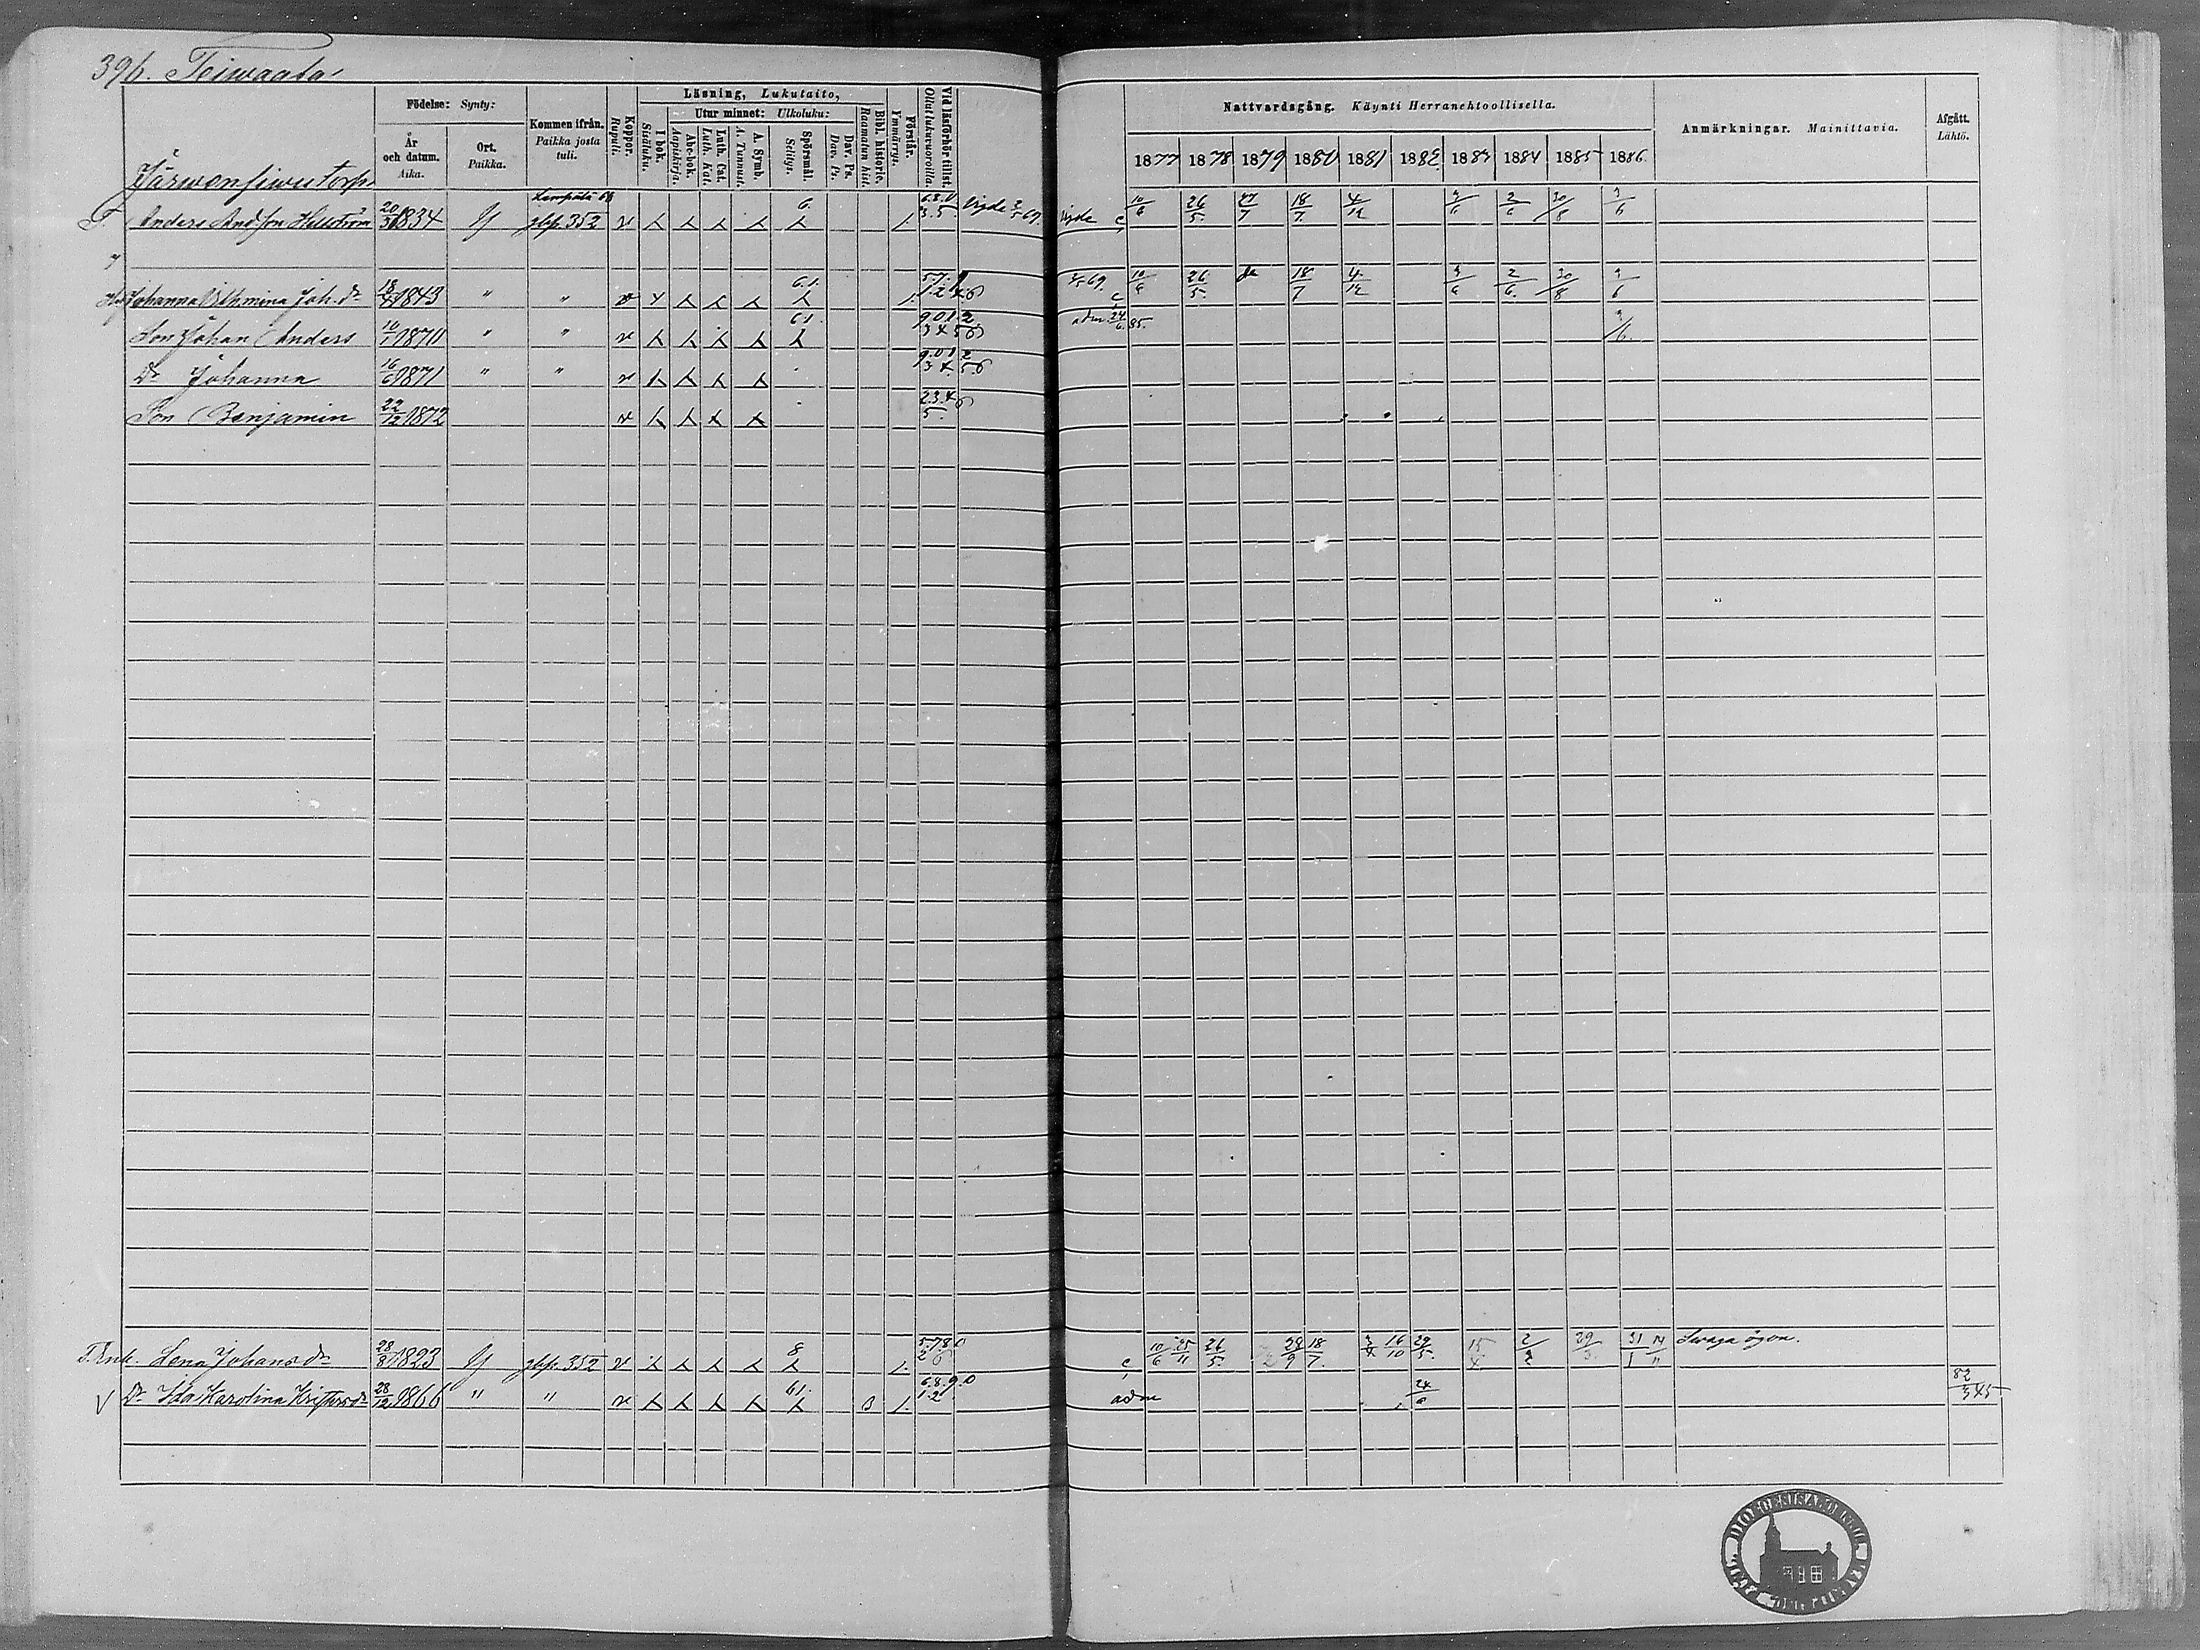 396. Teiwaala
Födelse: Synty:
År och datum. Aika.
Ort. Paikka.
Kommen ifrån. Paikka josta tuli.
Koppor. Rupuli.
Läsning, Lukutaito,
I bok. Sisäluku.
Utur minnet: Ulkoluku:
Abc-bok. Aapiskirja.
Luth. Cat. Luth. Kat.
A. Symb. A. Tunnust.
Spörsmål. Selitys.
Dav. Ps. Dav. Ps.
Bibl. historie. Raamatun hist.
Förstår. Ymmärrys.
Vid läsförhör tillst. Ollut lukuvuoroilla.
Nattvardsgång. Käynti Herranehtoollisella.
1877 1878 1879 1880 1881 1882 1883 1884 1885 1886
Anmärkningar. Mainittavia.
Afgått. Lähtö.
T. Anders And.son Hellström 20/3 1834 gbp. 352 6. 6.8.0 3.5. Vigde 10/6 26/5. 27/7 18/7. 4/12 3/6 2/6 30/8 3/6
H. Johanna Vilhmina Joh.dr 18/8 1843 " " 6.1. 10/6 26/5. 18/7 4/12 3/6 2/6. 30/8 3/6
Son Johan Anders 10/1 1870 " " 6.1. 9.0.1.2 3 4 5 6 adm. 24/6. 85. 3/6.
Dr Johanna 16/6 1871 " " 9.0.1.2 3 4. 5.6
Son Benjamin 22/12 1872 2.3.4.6 5.
T. Enk. Lena Johansdr 28/8 1823 gbp. 352 8 5.7.8.0 2 6 10/6 25/11 26/5. 28/9 18/7. 16/10 29/5. 15/4 31/1 Swaga ögon.
Dr Ida Karolina Kristersdr 28/12 1866 " " 61. 3 1. 6.8.9.0 1.2 adm 24/6 82/345